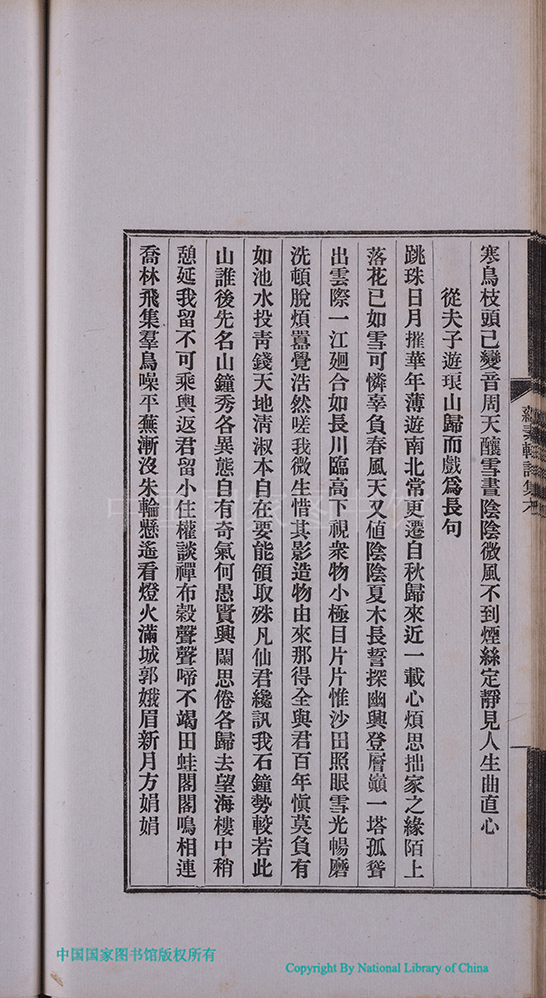 寒鳥枝頭已變音周天釀雪晝陰陰微風不到煙絲定靜見人生曲直心
從夫子遊琅山歸而戲爲長句
跳珠日月摧華年薄遊南北常更遷自秋歸來近一載心煩思拙家之緣陌上
落花已如雪可憐辜負春風天又值陰陰夏木長誓探幽興登層巔一塔孤聳
出雲際一江廻合如長川臨高下視衆物小極目片片惟沙田照眼雪光暢磨
洗頓脫煩囂覺浩然嗟我微生惜其影造物由來那得全與君百年愼莫負有
如池水投靑錢天地淸淑本自在要能領取殊凡仙君纔訊我石鐘勢較若此
山誰後先名山鐘秀各異態自有奇氣何愚賢興闌思倦各歸去望海樓中稍
憩延我留不可乘輿返君留小住權談禪布穀聲聲啼不竭田蛙閣閣鳴相連
喬林飛集羣鳥噪平蕪漸沒朱輪懸遙看燈火滿城郭娥眉新月方娟娟
中国国家图书馆版权所有
Copyright By National Library of China